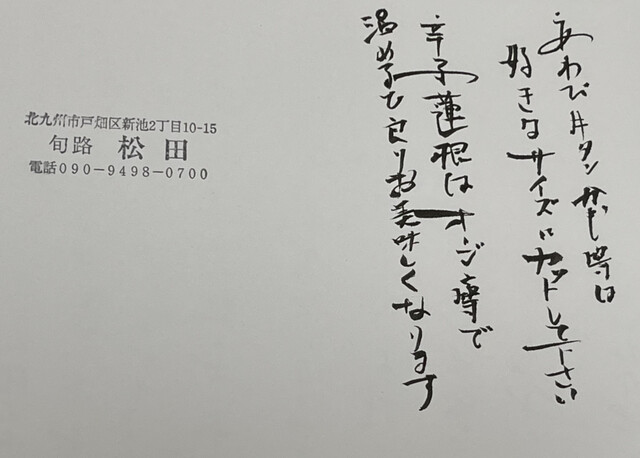 あわび 牛タン かも 等は
好きなサイズにカットして下さい
辛子蓮根はオーブン等で
温めると より お美味しくなります
北九州市戸畑区新池2丁目10-15
旬路 松田
電話090-9498-0700